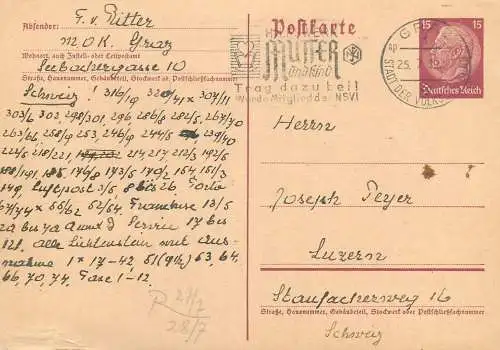 Absender: F. v. Ritter
M.O.K. Graz
Wohnort, auch Zustell- oder Leitpostamt
Seebachergasse 10
Straße, Hausnummer, Gebäudeteil, Stockwerk od. Postschließfachnummer
Schweiz! 316/9 320/41 x 307/11
303/6 302, 298/301, 296, 286/8 282/5, 267/70
263/66 258/9 253, 246/9 244/5 239/40
222/5 218/221, 214 217, 212/3 192/5
188/191, 185, 176/8 173/5 170/2 154, 151/3
149, Luftpost 3/5 8 bis 26. Porto
67/74 x 55/62 52/54. Franchise 13/5
2a bis 7a Service 17 bis
121. alle Lichtenstein mit Aus-
nahme 1 x 17-42, 51 (9½) 53, 64,
66, 70, 74. Taxe 1-12.
R 27/7
28/7
Postkarte
MUTTER
und Kind
Trag dazu bei
Werde Mitglied der NSV!
GR
25.
STADT DER VOLKS
15 15
Deutsches Reich
Herrn
Joseph Peyer
Luzern
Stauffacherweg 16
Straße, Hausnummer, Gebäudeteil, Stockwerk oder Postschließfachnummer
Schweiz